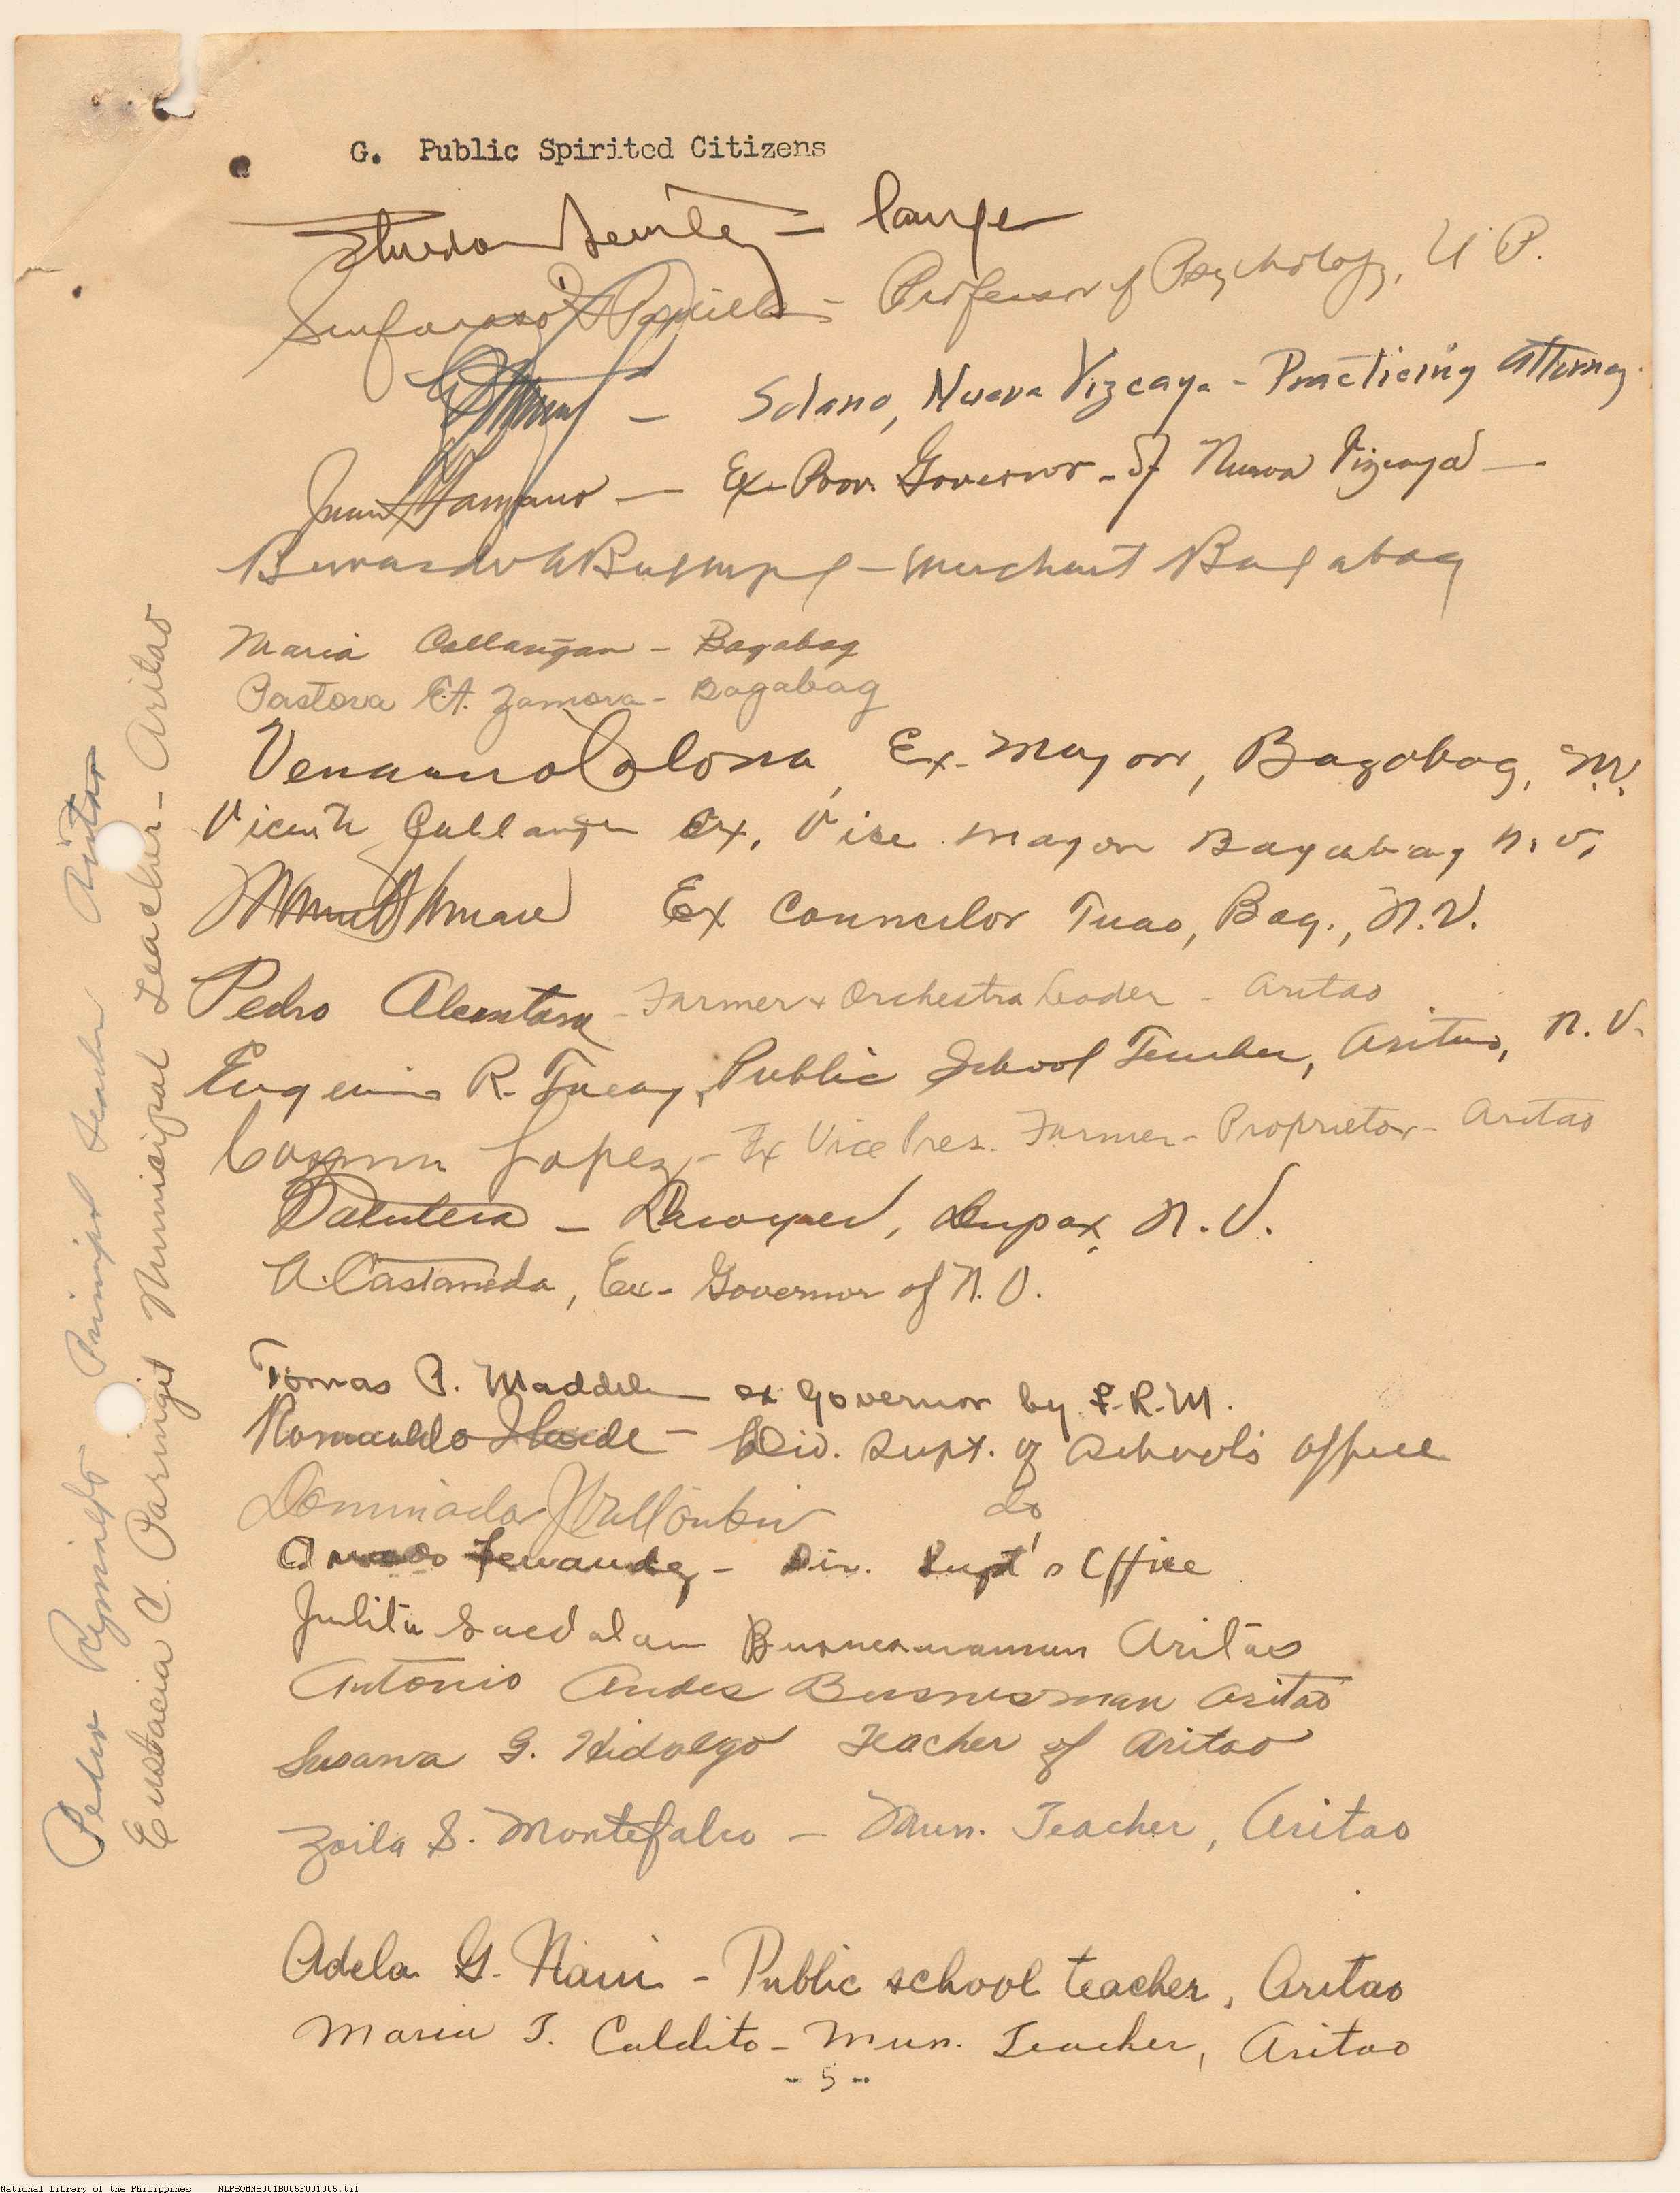 G. Public Spirited Citizens
– lawyer
– Professor of Psychology, U P.
– Solano, Nueva Vizcaya – Practicing Attorney
Juan Manzano – Ex-Prov. Governor of Nueva Vizcaya –
– Merchant Bagabag
Maria Callangan – Bagabag
Pastora Zamora – Bagabag
Venancio Colona, Ex-Mayor, Bagabag, N.V.
Vicente Callangan Ex. Vise mayor Bagabag N.V.
Ex Councilor Tuao, Bag., N.V.
Pedro Alcantara – Farmer & Orchestra Leader – Aritao
Eugenio R. Tucay, Public School Teacher, Aritao, N.V.
Lopez – Ex Vice Pres. Farmer – Proprietor – Aritao
– Lawyer, Dupax, N.V.
A. Castañeda, Ex-Governor of N.V.
Tomas P. Maddela ex Governor by F.R.M.
Romualdo – Div. Supt. of Schools office
Dominador do
Amado Fernandez – Div. Supt's Office
Julita Aritao
Antonio Andes Busnesman Aritao
Susana G. Hidalgo Teacher of Aritao
Zoila S. Montefalco – Mun. Teacher, Aritao
Adela G. – Public school teacher, Aritao
Maria T. Caldito – Mun. Teacher, Aritao
- 5 -
Pedro Reginaldo Principal Teacher Aritao
Eustacia C. Paringit Municipal Teacher – Aritao
National Library of the Philippines NLPSOMNS001B005F001005.tif